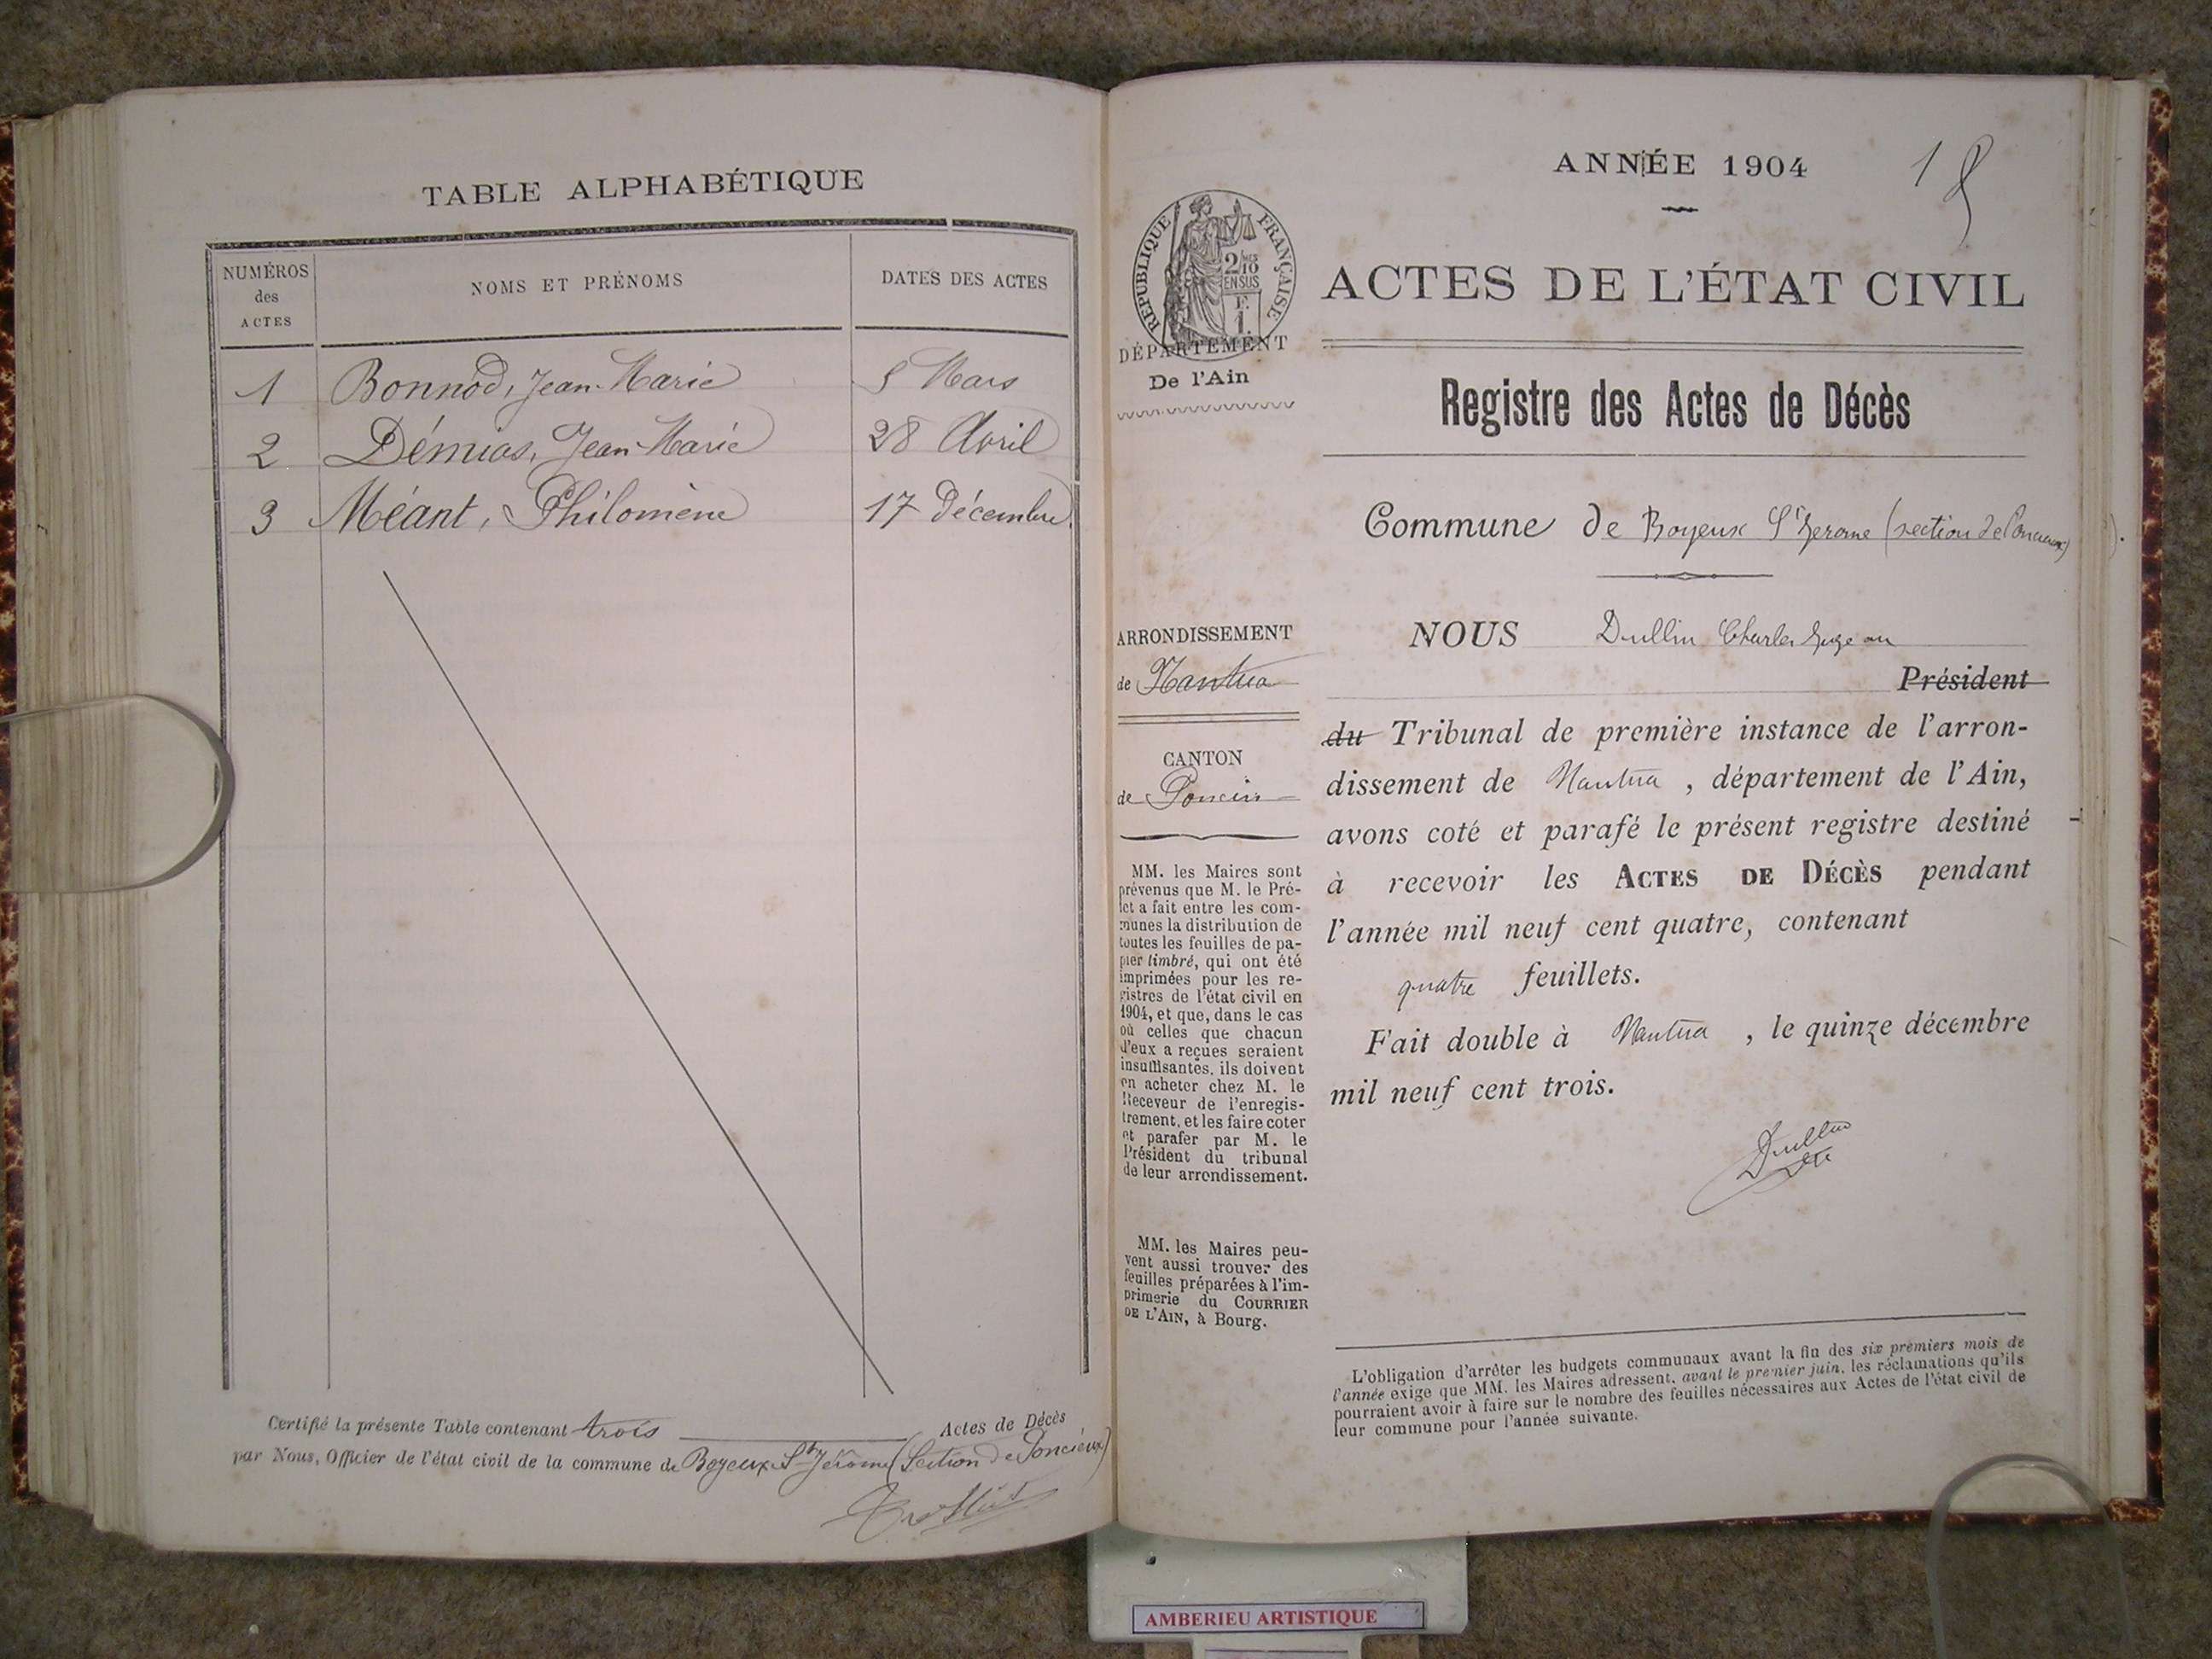 TABLE ALPHABÉTIQUE
NUMÉROS des ACTES
NOMS ET PRÉNOMS
DATES DES ACTES
1 Bonnod, Jean-Marie 5 Mars
2 Démias, Jean-Marie 28 Avril
3 Méant, Philomène 17 Décembre
Certifié la présente Table contenant trois Actes de Décès
par Nous, Officier de l'état civil de la commune de Boyeux St Jérôme (Section de Poncieux)
ANNÉE 1904
1
RÉPUBLIQUE FRANÇAISE
2/10
EN SUS
F.
1.
DÉPARTEMENT
De l'Ain
ACTES DE L'ÉTAT CIVIL
Registre des Actes de Décès
Commune de Boyeux St Jerome (section de Poncieux)
ARRONDISSEMENT
de Nantua
CANTON
de Poncin
MM. les Maires sont
prévenus que M. le Pré-
fet a fait entre les com-
munes la distribution de
toutes les feuilles de pa-
pier timbré, qui ont été
imprimées pour les re-
gistres de l'état civil en
1904, et que, dans le cas
où celles que chacun
d'eux a reçues seraient
insuffisantes, ils doivent
en acheter chez M. le
Receveur de l'enregis-
trement, et les faire coter
et parafer par M. le
Président du tribunal
de leur arrondissement.
MM. les Maires peu-
vent aussi trouver des
feuilles préparées à l'im-
primerie du COURRIER
DE L'AIN, à Bourg.
NOUS Dullin Charles Juge au
Président
du Tribunal de première instance de l'arron-
dissement de Nantua, département de l'Ain,
avons coté et parafé le présent registre destiné
à recevoir les ACTES DE DÉCÈS pendant
l'année mil neuf cent quatre, contenant
quatre feuillets.
Fait double à Nantua, le quinze décembre
mil neuf cent trois.
Dullin
L'obligation d'arrêter les budgets communaux avant la fin des six premiers mois de
l'année exige que MM. les Maires adressent, avant le premier juin, les réclamations qu'ils
pourraient avoir à faire sur le nombre des feuilles nécessaires aux Actes de l'état civil de
leur commune pour l'année suivante.
AMBERIEU ARTISTIQUE